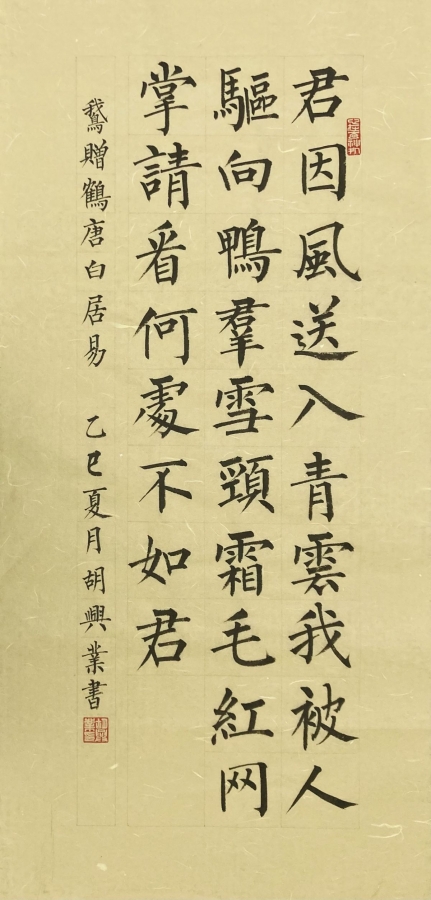 君因風送入青雲我被人
驅向鴨羣雪頸霜毛紅网
掌請看何處不如君
鵝贈鶴唐白居易 乙巳夏月胡興業書